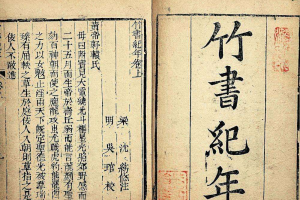 竹書紀年
竹書紀年卷上
梁 沈約附注
明 吳琯校
黃帝軒轅氏
母曰附寶見大電繞北斗樞星光照郊野感而孕
二十五月而生帝於壽丘弱而能言龍顏有聖德
劾百神朝而使之應龍攻蚩尤戰虎豹熊羆四獸
之力以女魃止淫雨天下既定聖德光被羣瑞
有屈軼之草生於庭佞人入朝則草指之是以
佞人不敢進